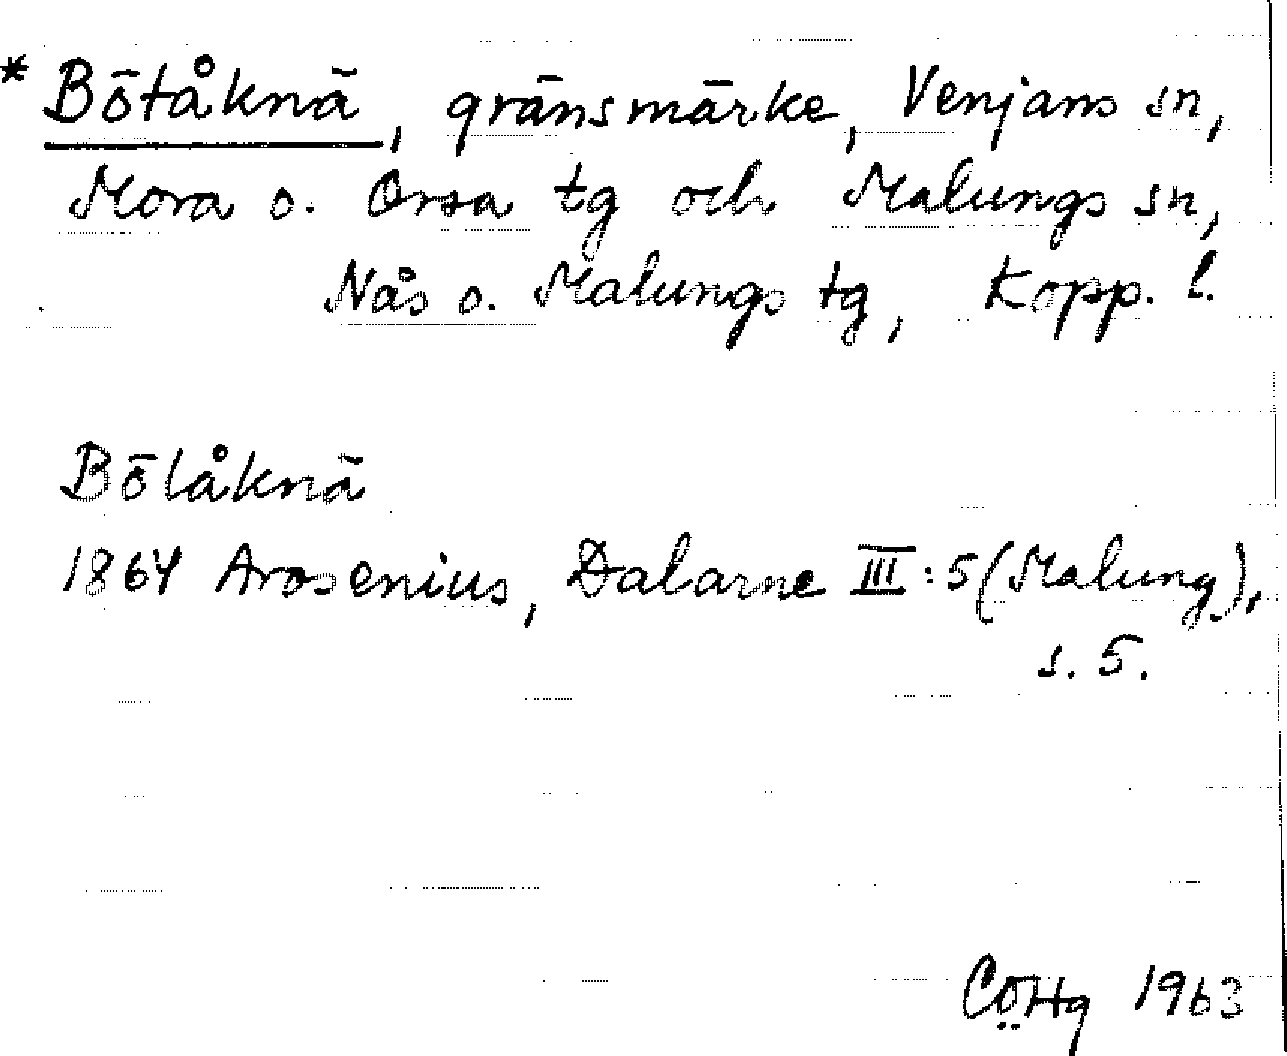 * Bötåknä, gränsmärke, Venjans sn,
Mora o. Orsa tg och Malungs sn,
Nås o. Malungs tg, Kopp. l.
Bölåknä
1864 Arosenius, Dalarne III:5 (Malung),
s. 5.
CÖHg 1963